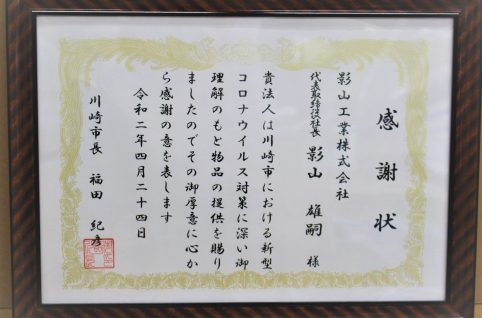 感謝状
影山工業株式会社
代表取締役社長 影山 雄嗣 様
貴法人は川崎市における新型
コロナウイルス対策に深い御
理解のもと物品の提供を賜り
ましたのでその御厚意に心か
ら感謝の意を表します
令和二年四月二十四日
川崎市長 福田 紀彦